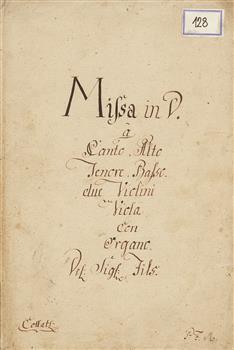 128
Missa in D.
à
Canto. Alto
Tenore. Basso.
due Violini
Viola
con
Organo.
Del Sigl. Fils.
Collatt
P. F. M.